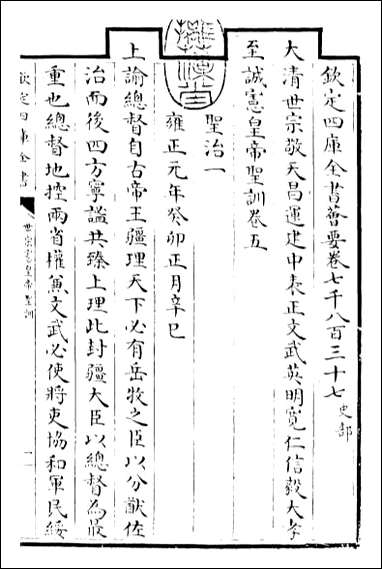 欽定四庫全書薈要卷七千八百三十七 史部
大清世宗敬天昌運建中表正文武英明寬仁信毅大孝
至誠憲皇帝聖訓卷五
聖治一
雍正元年癸卯正月辛巳
上諭總督自古帝王疆理天下必有岳牧之臣以分猷佐
治而後四方寧謐共臻上理此封疆大臣以總督為最
重也總督地控兩省權兼文武必使將吏協和軍民綏
欽定四庫全書
世宗憲皇帝聖訓